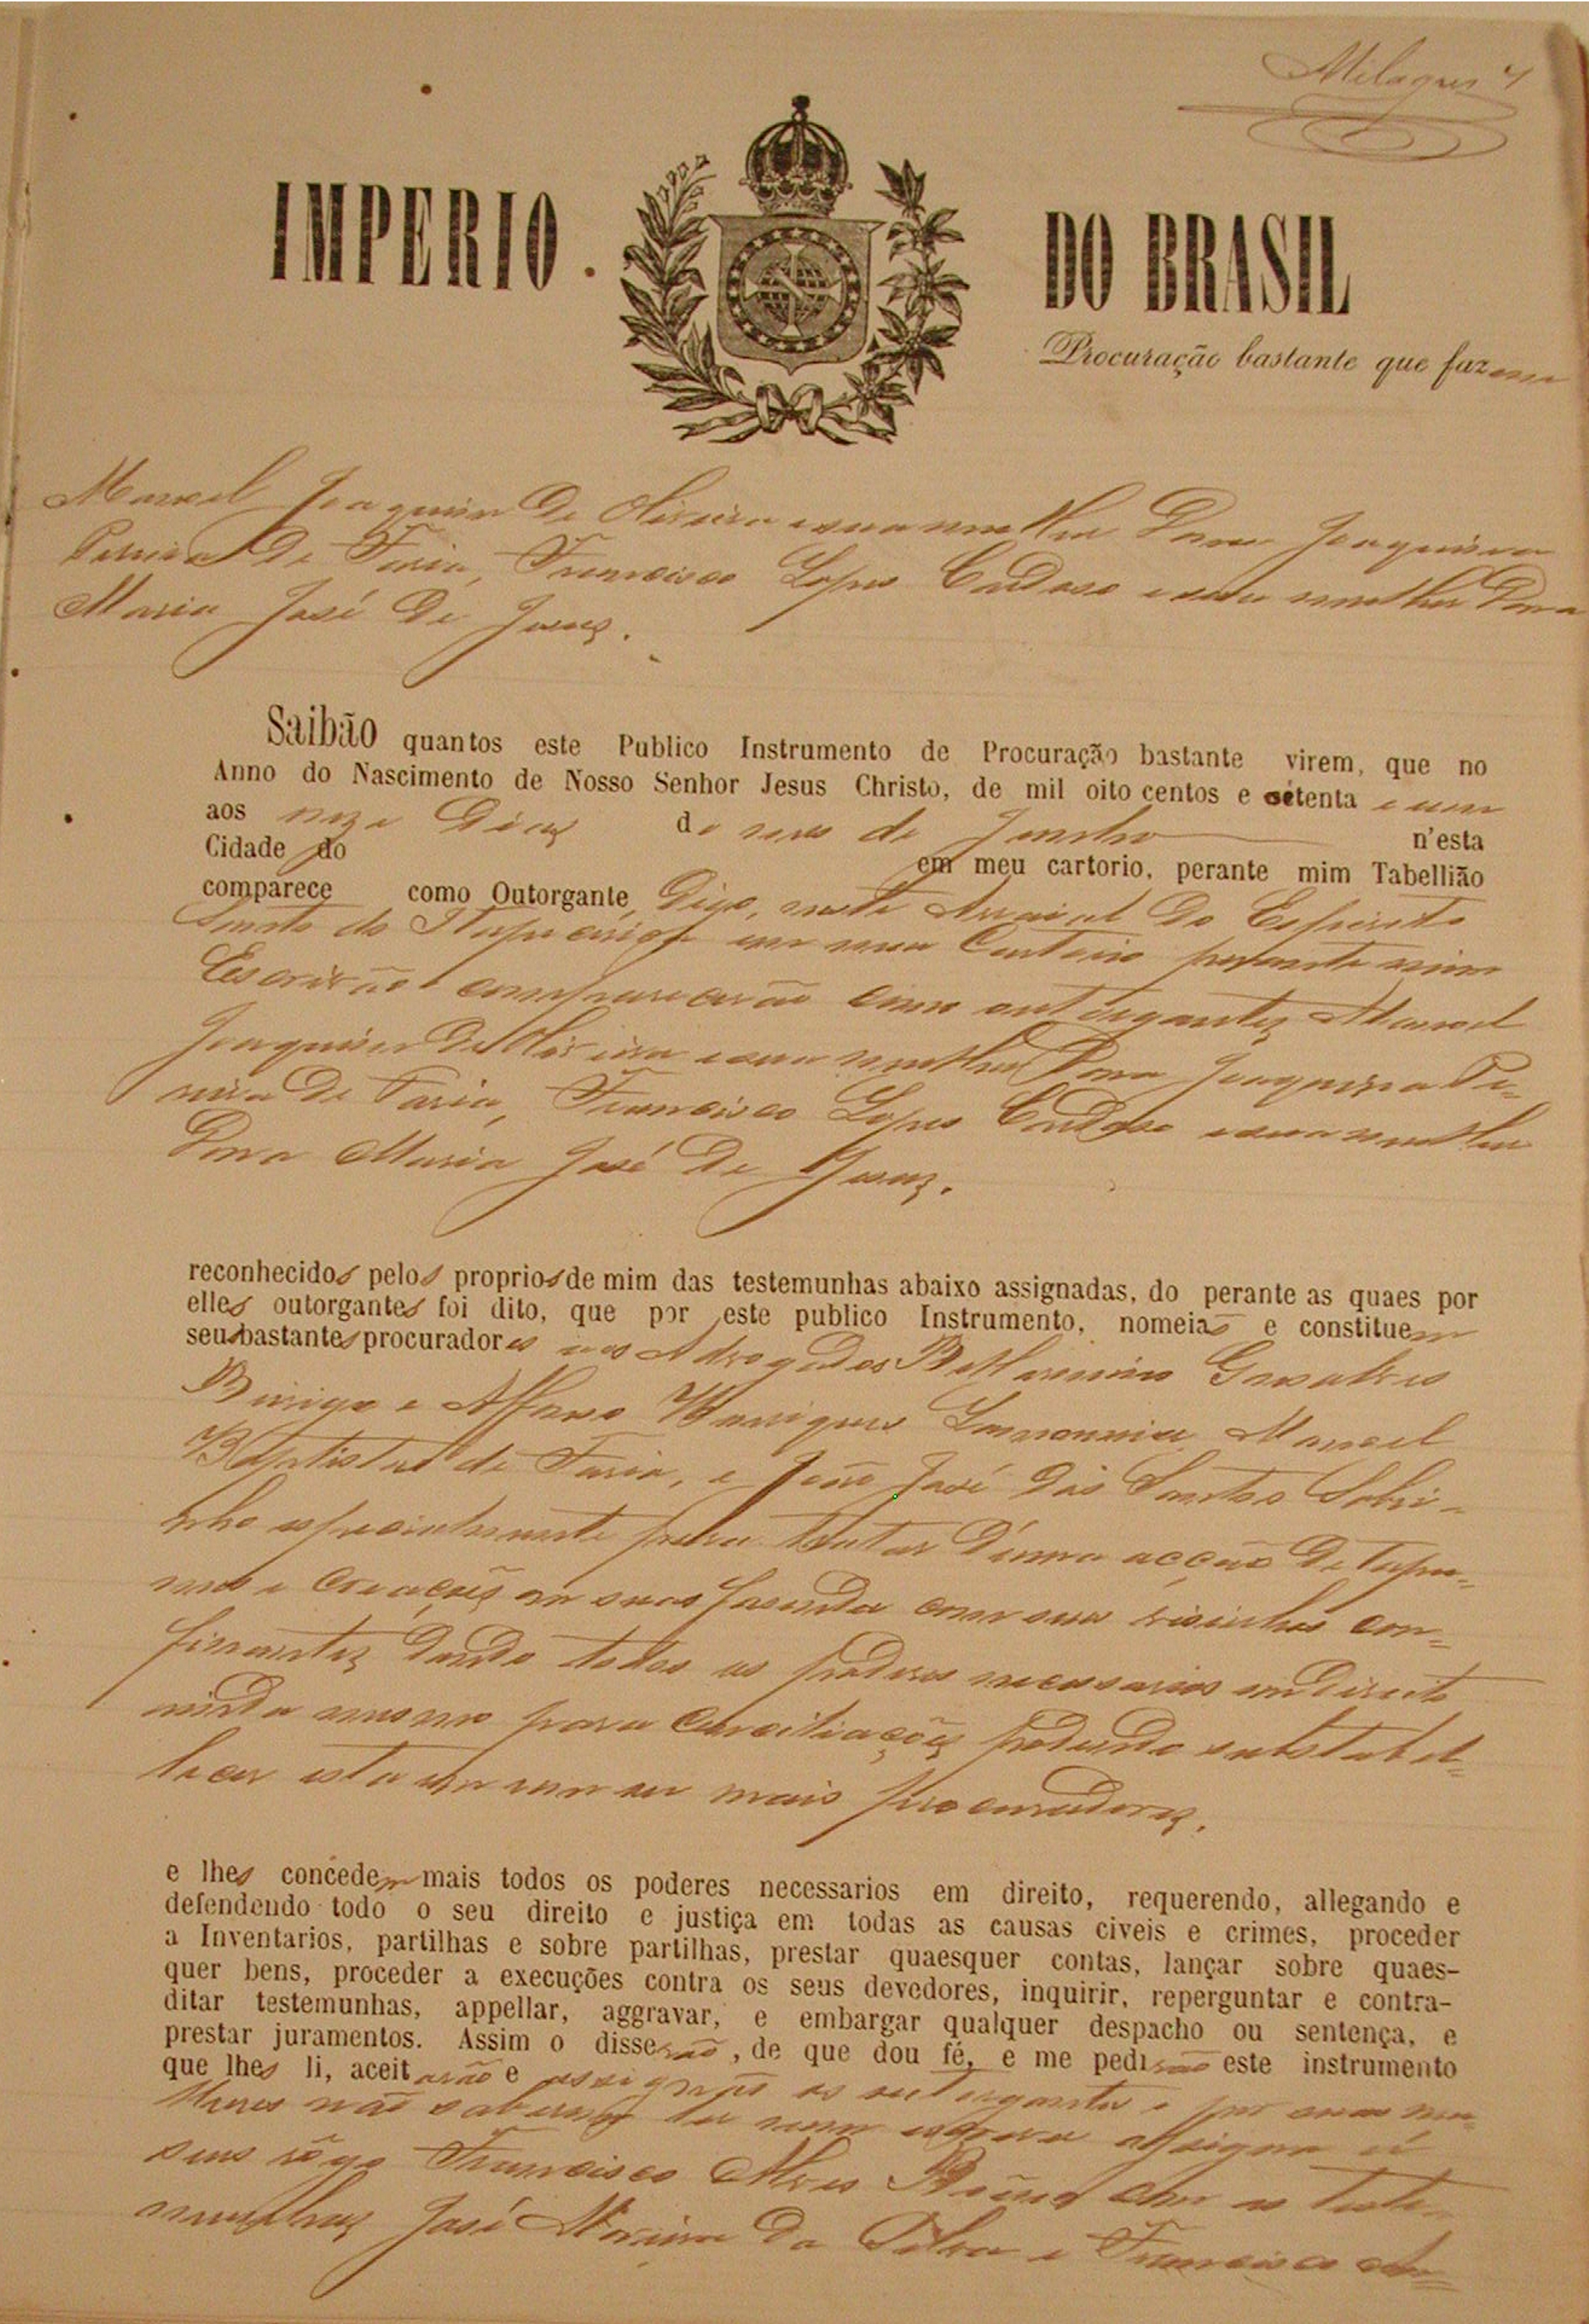 Milagres
IMPERIO DO BRASIL
Procuração bastante que fazem
Manoel Joaquim de Oliveira e sua mulher Dona Joaquina
Pereira de Faria, Francisco Lopes Cardoso e sua mulher Dona
Maria José de Jesus.
Saibão quantos este Publico Instrumento de Procuração bastante virem, que no
Anno do Nascimento de Nosso Senhor Jesus Christo, de mil oito centos e setenta e um
aos dias do mes de Junho n'esta
Cidade do em meu cartorio, perante mim Tabellião
comparece como Outorgante, Digo, neste Arraial do Espirito
Santo de Itapecerica em meu Cartorio perante mim
Escrivão comparecerão como outorgantes Manoel
Joaquim de Oliveira e sua mulher Dona Joaquina Pe-
reira de Faria, Francisco Lopes Cardoso e sua mulher
Dona Maria José de Jesus.
reconhecidos pelos proprios de mim das testemunhas abaixo assignadas, do perante as quaes por
elles outorgantes foi dito, que por este publico Instrumento, nomeião e constituem
seus bastantes procuradores aos Advogados Belarmino Gonsalves
e Affonso Henriques Manoel
Baptista de Faria, e João José dos Santos Sobri-
nho especialmente para tratar d'uma acção de tapu-
mes e em suas fasenda com seus visinhos con-
finantes dando todos os poderes necessarios em direito
ainda mesmo para Conciliações podendo substabel-
lecer esta em um ou mais procuradores.
e lhes concedem mais todos os poderes necessarios em direito, requerendo, allegando e
defendendo todo o seu direito e justiça em todas as causas civeis e crimes, proceder
a Inventarios, partilhas e sobre partilhas, prestar quaesquer contas, lançar sobre quaes-
quer bens, proceder a execuções contra os seus devedores, inquirir, reperguntar e contra-
ditar testemunhas, appellar, aggravar, e embargar qualquer despacho ou sentença, e
prestar juramentos. Assim o disserão, de que dou fé, e me pedirão este instrumento
que lhes li, aceitarão e assignão os outorgantes e por suas mu-
lheres não saberem ler nem escrever assigna á
seus rôgo Francisco Alves com as teste-
munhas José Moreira da Silva e Francisco